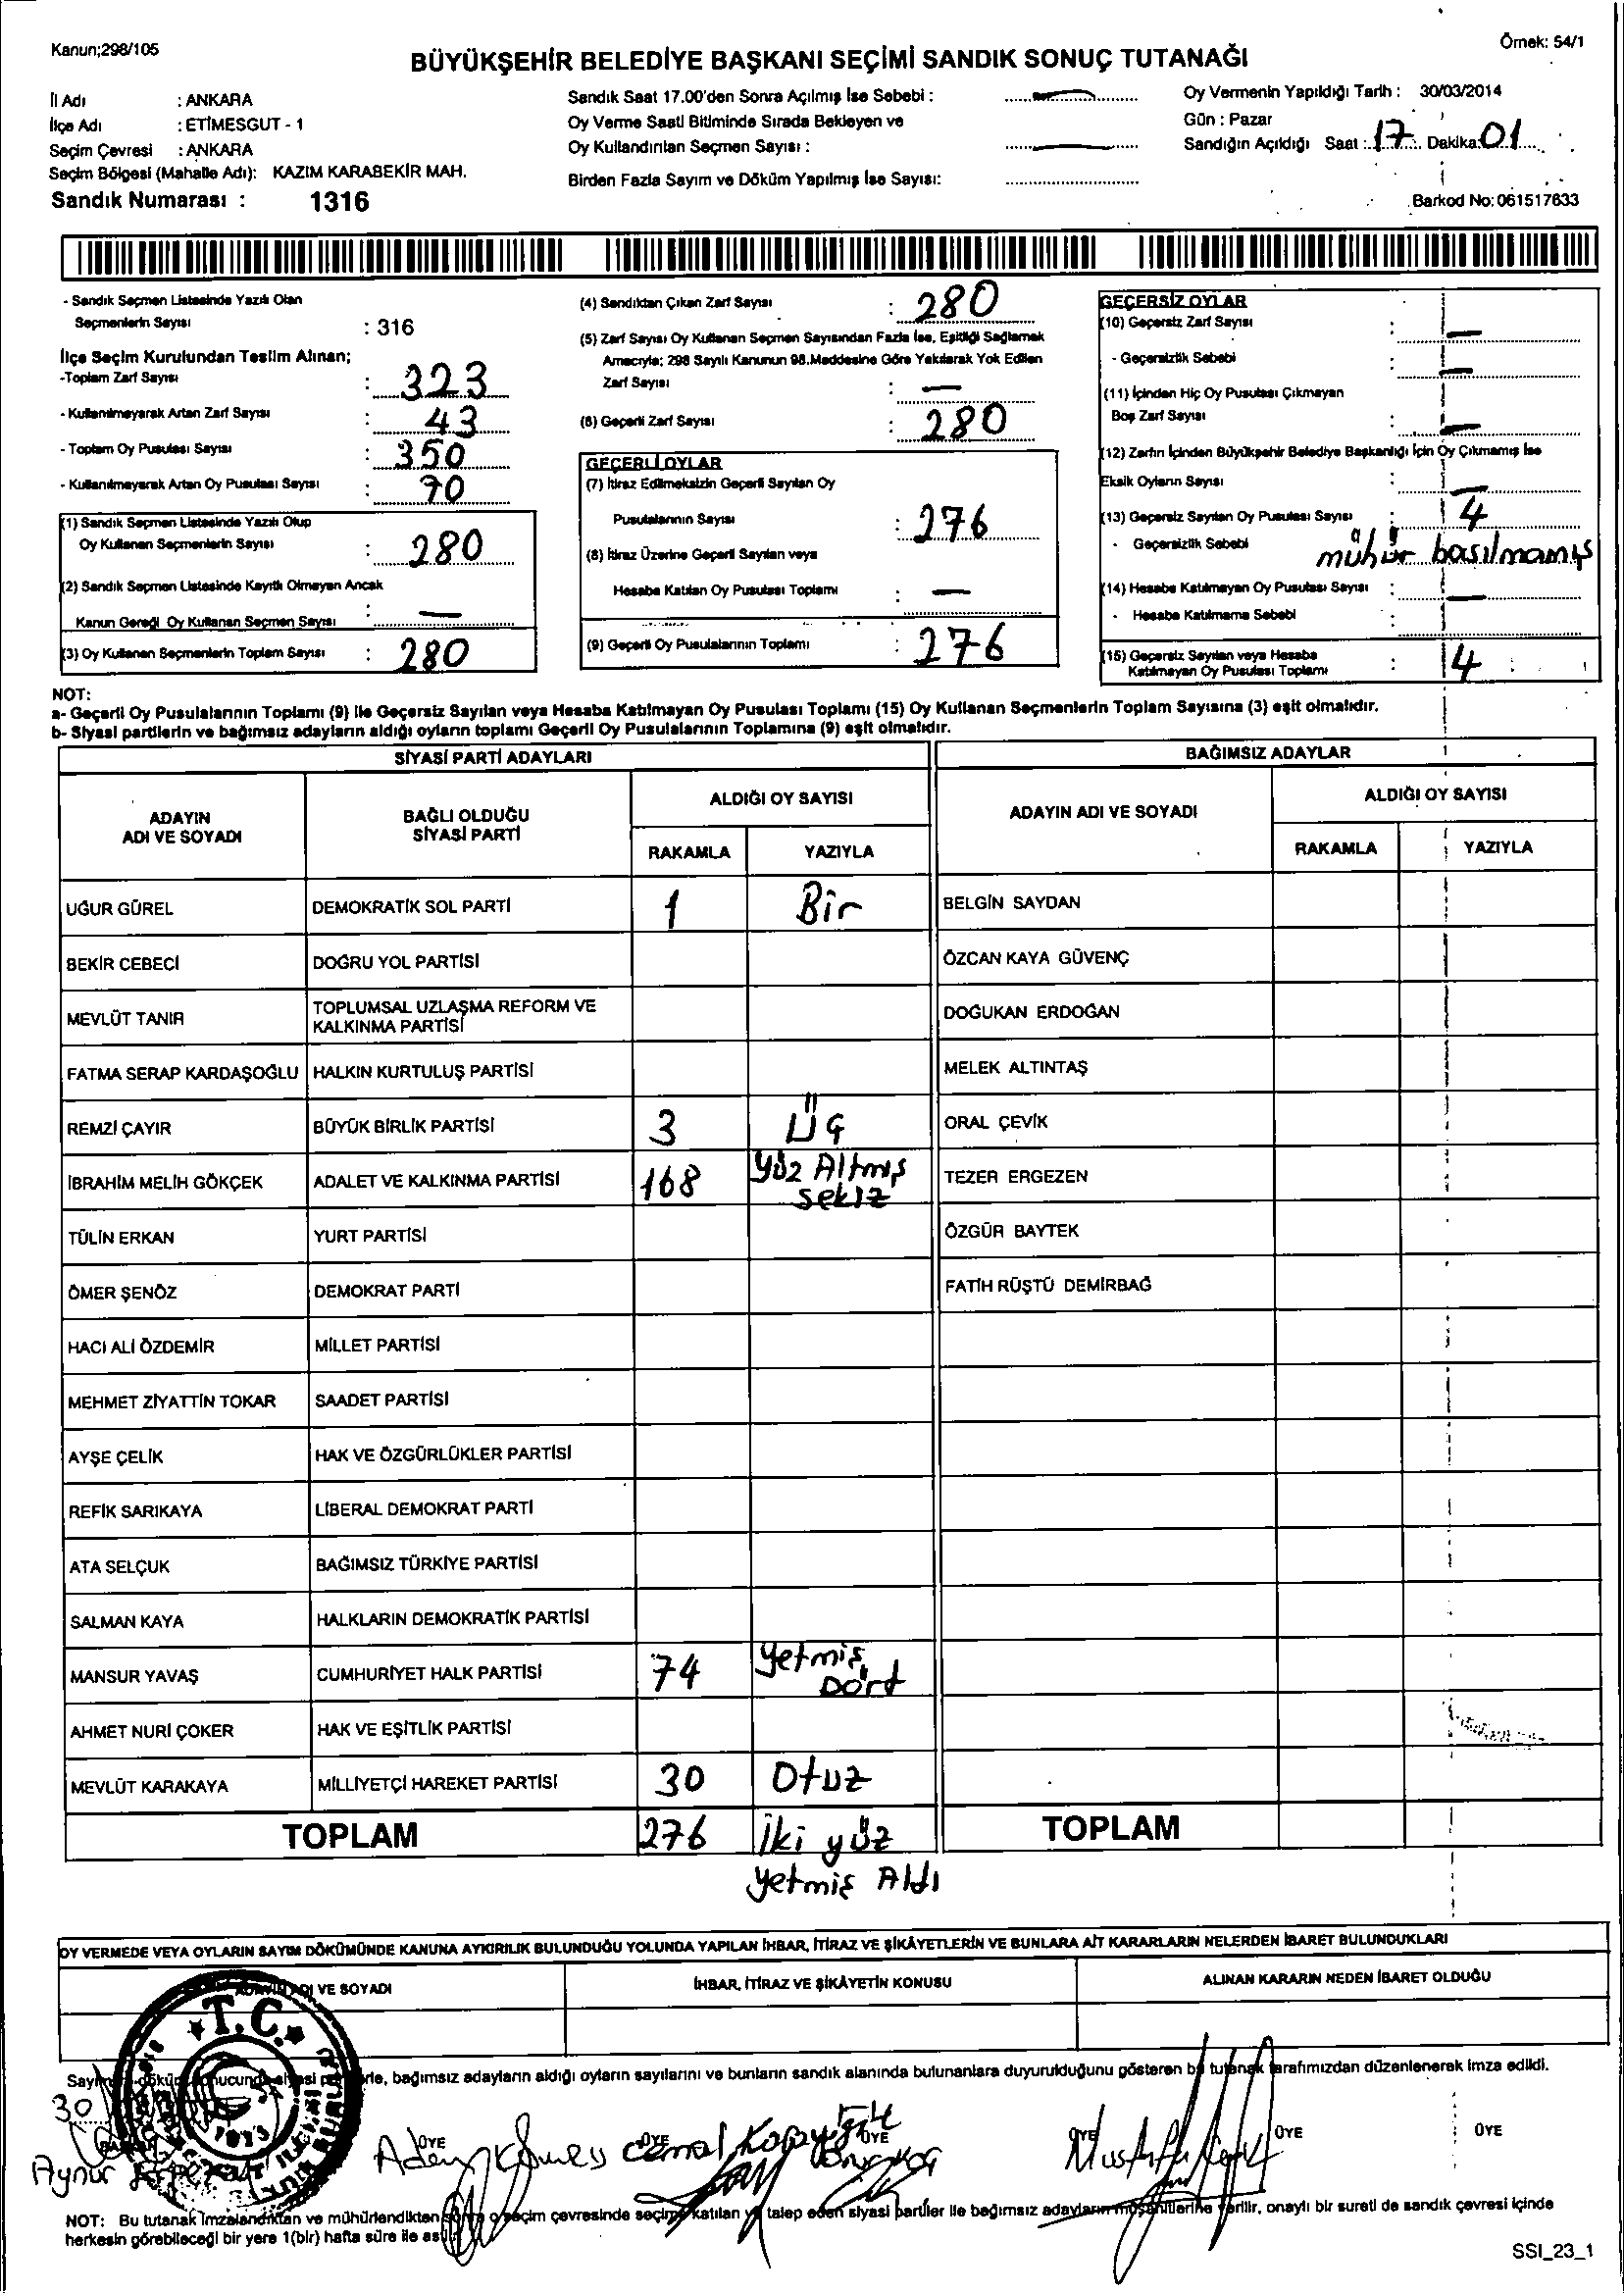 Kanun;298/105
Örnek: 54/1
BÜYÜKŞEHİR BELEDİYE BAŞKANI SEÇİMİ SANDIK SONUÇ TUTANAĞI
İl Adı : ANKARA
İlçe Adı : ETİMESGUT - 1
Seçim Çevresi : ANKARA
Seçim Bölgesi (Mahalle Adı): KAZIM KARABEKİR MAH.
Sandık Numarası : 1316
Sandık Saat 17.00'den Sonra Açılmış İse Sebebi : —
Oy Verme Saati Bitiminde Sırada Bekleyen ve
Oy Kullandırılan Seçmen Sayısı : —
Birden Fazla Sayım ve Döküm Yapılmış İse Sayısı:
Oy Vermenin Yapıldığı Tarih : 30/03/2014
Gün : Pazar
Sandığın Açıldığı Saat : 17 Dakika: 01
Barkod No: 061517633
- Sandık Seçmen Listesinde Yazılı Olan
Seçmenlerin Sayısı : 316
İlçe Seçim Kurulundan Teslim Alınan;
-Toplam Zarf Sayısı : 323
- Kullanılmayarak Artan Zarf Sayısı : 43
- Toplam Oy Pusulası Sayısı : 350
- Kullanılmayarak Artan Oy Pusulası Sayısı : 70
(1) Sandık Seçmen Listesinde Yazılı Olup
Oy Kullanan Seçmenlerin Sayısı : 280
(2) Sandık Seçmen Listesinde Kayıtlı Olmayan Ancak
Kanun Gereği Oy Kullanan Seçmen Sayısı : —
(3) Oy Kullanan Seçmenlerin Toplam Sayısı : 280
(4) Sandıktan Çıkan Zarf Sayısı : 280
(5) Zarf Sayısı Oy Kullanan Seçmen Sayısından Fazla İse, Eşitliği Sağlamak
Amacıyla; 298 Sayılı Kanunun 98.Maddesine Göre Yakılarak Yok Edilen
Zarf Sayısı : —
(6) Geçerli Zarf Sayısı : 280
GEÇERLİ OYLAR
(7) İtiraz Edilmeksizin Geçerli Sayılan Oy
Pusulalarının Sayısı : 276
(8) İtiraz Üzerine Geçerli Sayılan veya
Hesaba Katılan Oy Pusulası Toplamı : —
(9) Geçerli Oy Pusulalarının Toplamı : 276
GEÇERSİZ OYLAR
(10) Geçersiz Zarf Sayısı : —
- Geçersizlik Sebebi : —
(11) İçinden Hiç Oy Pusulası Çıkmayan
Boş Zarf Sayısı : —
(12) Zarfın İçinden Büyükşehir Belediye Başkanlığı İçin Oy Çıkmamış İse
Eksik Oyların Sayısı : —
(13) Geçersiz Sayılan Oy Pusulası Sayısı : 4
- Geçersizlik Sebebi : mühür basılmamış
(14) Hesaba Katılmayan Oy Pusulası Sayısı : —
- Hesaba Katılmama Sebebi :
(15) Geçersiz Sayılan veya Hesaba
Katılmayan Oy Pusulası Toplamı : 4
NOT:
a- Geçerli Oy Pusulalarının Toplamı (9) ile Geçersiz Sayılan veya Hesaba Katılmayan Oy Pusulası Toplamı (15) Oy Kullanan Seçmenlerin Toplam Sayısına (3) eşit olmalıdır.
b- Siyasi partilerin ve bağımsız adayların aldığı oyların toplamı Geçerli Oy Pusulalarının Toplamına (9) eşit olmalıdır.
SİYASİ PARTİ ADAYLARI
BAĞIMSIZ ADAYLAR
ADAYIN
ADI VE SOYADI
BAĞLI OLDUĞU
SİYASİ PARTİ
ALDIĞI OY SAYISI
RAKAMLA YAZIYLA
ADAYIN ADI VE SOYADI
ALDIĞI OY SAYISI
RAKAMLA YAZIYLA
UĞUR GÜREL DEMOKRATİK SOL PARTİ 1 Bir BELGİN SAYDAN
BEKİR CEBECİ DOĞRU YOL PARTİSİ ÖZCAN KAYA GÜVENÇ
MEVLÜT TANIR TOPLUMSAL UZLAŞMA REFORM VE
KALKINMA PARTİSİ DOĞUKAN ERDOĞAN
FATMA SERAP KARDAŞOĞLU HALKIN KURTULUŞ PARTİSİ MELEK ALTINTAŞ
REMZİ ÇAYIR BÜYÜK BİRLİK PARTİSİ 3 ÜÇ ORAL ÇEVİK
İBRAHİM MELİH GÖKÇEK ADALET VE KALKINMA PARTİSİ 168 Yüz Altmış
sekiz TEZER ERGEZEN
TÜLİN ERKAN YURT PARTİSİ ÖZGÜR BAYTEK
ÖMER ŞENÖZ DEMOKRAT PARTİ FATİH RÜŞTÜ DEMİRBAĞ
HACI ALİ ÖZDEMİR MİLLET PARTİSİ
MEHMET ZİYATTİN TOKAR SAADET PARTİSİ
AYŞE ÇELİK HAK VE ÖZGÜRLÜKLER PARTİSİ
REFİK SARIKAYA LİBERAL DEMOKRAT PARTİ
ATA SELÇUK BAĞIMSIZ TÜRKİYE PARTİSİ
SALMAN KAYA HALKLARIN DEMOKRATİK PARTİSİ
MANSUR YAVAŞ CUMHURİYET HALK PARTİSİ 74 Yetmiş
Dört
AHMET NURİ ÇOKER HAK VE EŞİTLİK PARTİSİ
MEVLÜT KARAKAYA MİLLİYETÇİ HAREKET PARTİSİ 30 Otuz
TOPLAM 276 İki yüz
yetmiş Altı
TOPLAM
OY VERMEDE VEYA OYLARIN SAYIM DÖKÜMÜNDE KANUNA AYKIRILIK BULUNDUĞU YOLUNDA YAPILAN İHBAR, İTİRAZ VE ŞİKÂYETLERİN VE BUNLARA AİT KARARLARIN NELERDEN İBARET BULUNDUKLARI
VE SOYADI İHBAR, İTİRAZ VE ŞİKÂYETİN KONUSU ALINAN KARARIN NEDEN İBARET OLDUĞU
T.C.
bağımsız adayların aldığı oyların sayılarını ve bunların sandık alanında bulunanlara duyurulduğunu gösteren bu tutanak tarafımızdan düzenlenerek imza edildi.
30
ÜYE ÜYE ÜYE ÜYE ÜYE ÜYE
Aynur
Adem
Cemal
Mustafa
NOT: Bu tutanak imzalandıktan ve mühürlendikten sonra o seçim çevresinde seçime katılan ve talep eden siyasi partiler ile bağımsız adayların müşahitlerine verilir, onaylı bir sureti de sandık çevresi içinde
herkesin görebileceği bir yere 1(bir) hafta süre ile
SSI_23_1